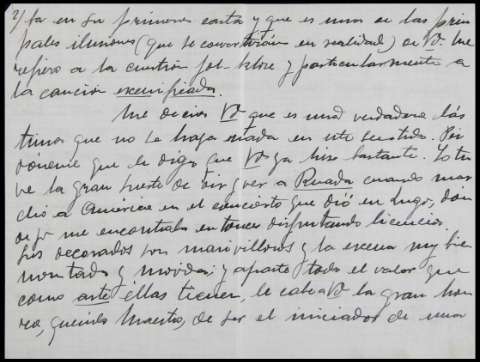 ba en su primera carta y que es una de las prin
pales ilusiones (que se convertirán en realidad) de Vd. Me
refiero a la cuestión fol-klore y particularmente a
la canción escenificada.
Me decía Vd que es una verdadera lás
tima que no se haya estado en este sentido. Per
dóneme que le diga que Vd ya hizo bastante. Yo tu
ve la gran suerte de oir y ver a Ruada cuando mar
chó a América en el concierto que dió en Lugo, dón
de yo me encontraba entonces disfrutando licencia.
Sus decorados son maravillosos y la escena muy bien
montada y movida; y aparte todo el valor que
como arte ellas tienen, le cabe a Vd la gran hon
ra, querido Maestro, de ser el iniciador de una